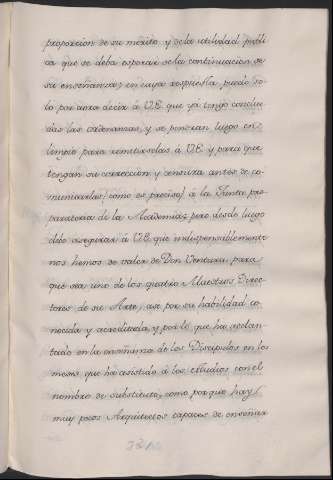 proporcion de su merito y de la utilidad publi
ca que se deba esperar de la continuacion de
su enseñanza; en cuya respuesta puedo so
lo por aora decir á V.E. que yá tengo conclui
das las ordenanzas, y se pondran luego en
limpio para remitirselas á V.E. y para que
tengan su correccion y censura antes de co
municarlas (como es preciso) á la Junta pre
paratoria de la Academia; pero desde luego
debo asegurar á V.E. que indispensablemente
nos hemos de valer de Don Ventura para
que sea uno de los quatro Maestros Direc
tores de su Arte, asi por su habilidad co
nocida y acreditada, y por lo que ha adelan
tado en la enseñanza de los Discipulos en los
meses que ha asistido á los estudios con el
nombre de substituto, como por que hay
muy pocos Arquitectos capaces de enseñar